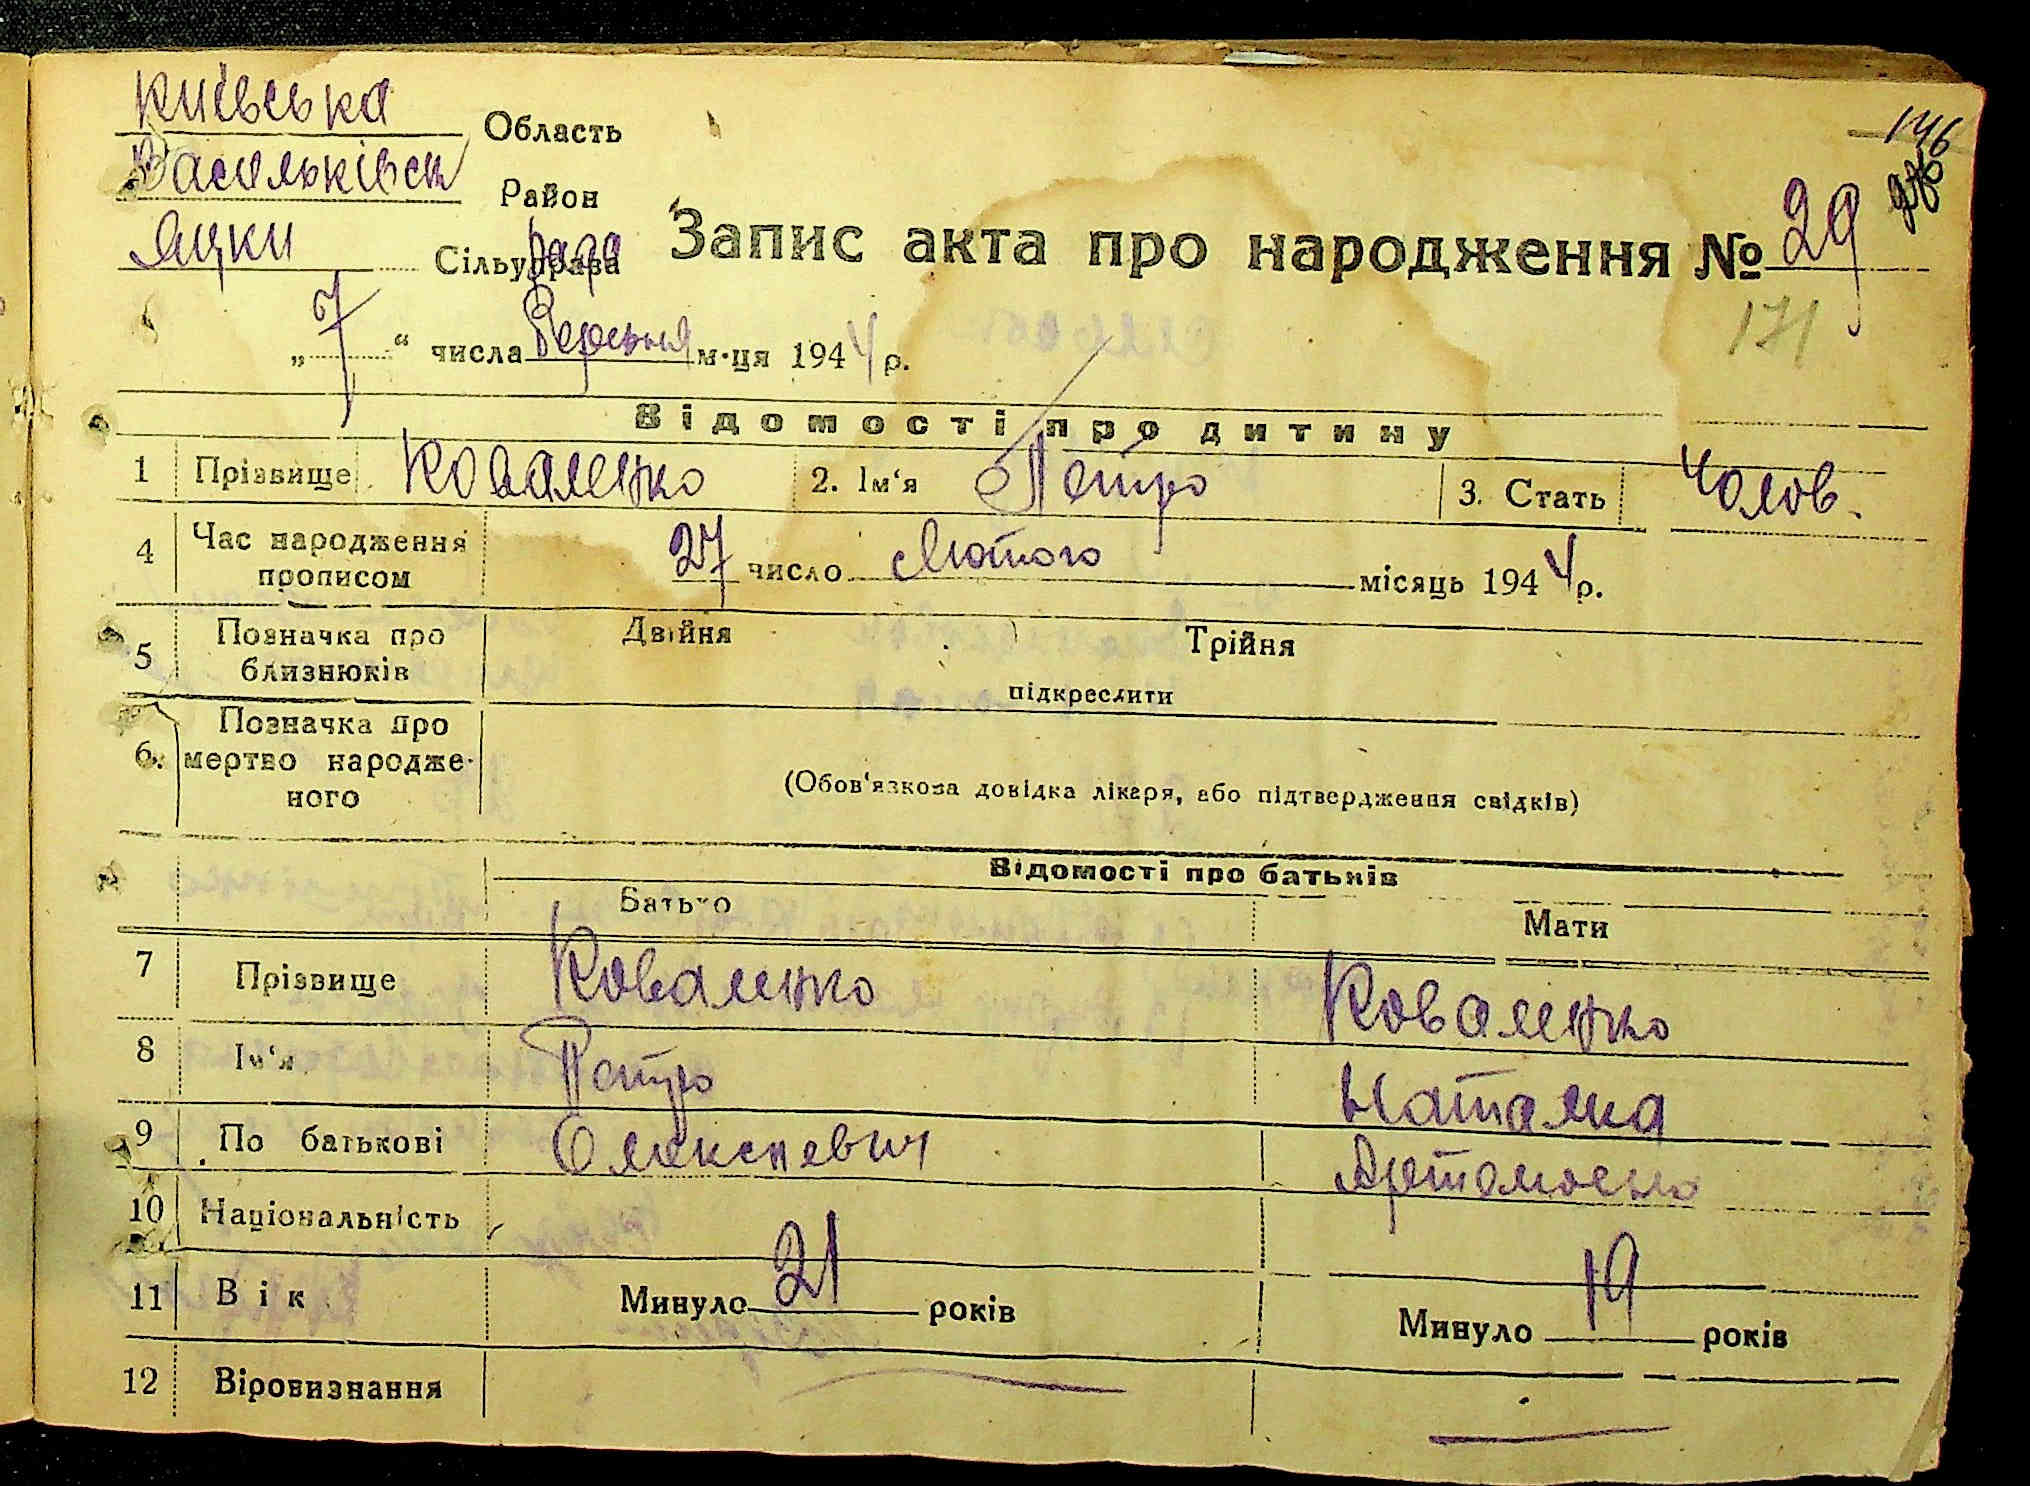 Київська Область
Васильківськ Район
Яцки Сільуправа рада
Запис акта про народження № 29
146
171
„ 7 “ числа Вересня м-ця 1944 р.
Відомості про дитину
1 Прізвище Коваленко 2. Ім‘я Петро 3. Стать Чолов.
4 Час народження прописом 27 число Лютого місяць 1944 р.
5 Позначка про близнюків Двійня Трійня
підкреслити
6. Позначка про мертво народже-
ного (Обов‘язкова довідка лікаря, або підтвердження свідків)
Відомості про батьків
Батько Мати
7 Прізвище Коваленко Коваленко
8 Ім‘я Петро Наталка
9 По батькові Олексієвич Артемовна
10 Національність
11 Вік Минуло 21 років Минуло 19 років
12 Віровизнання